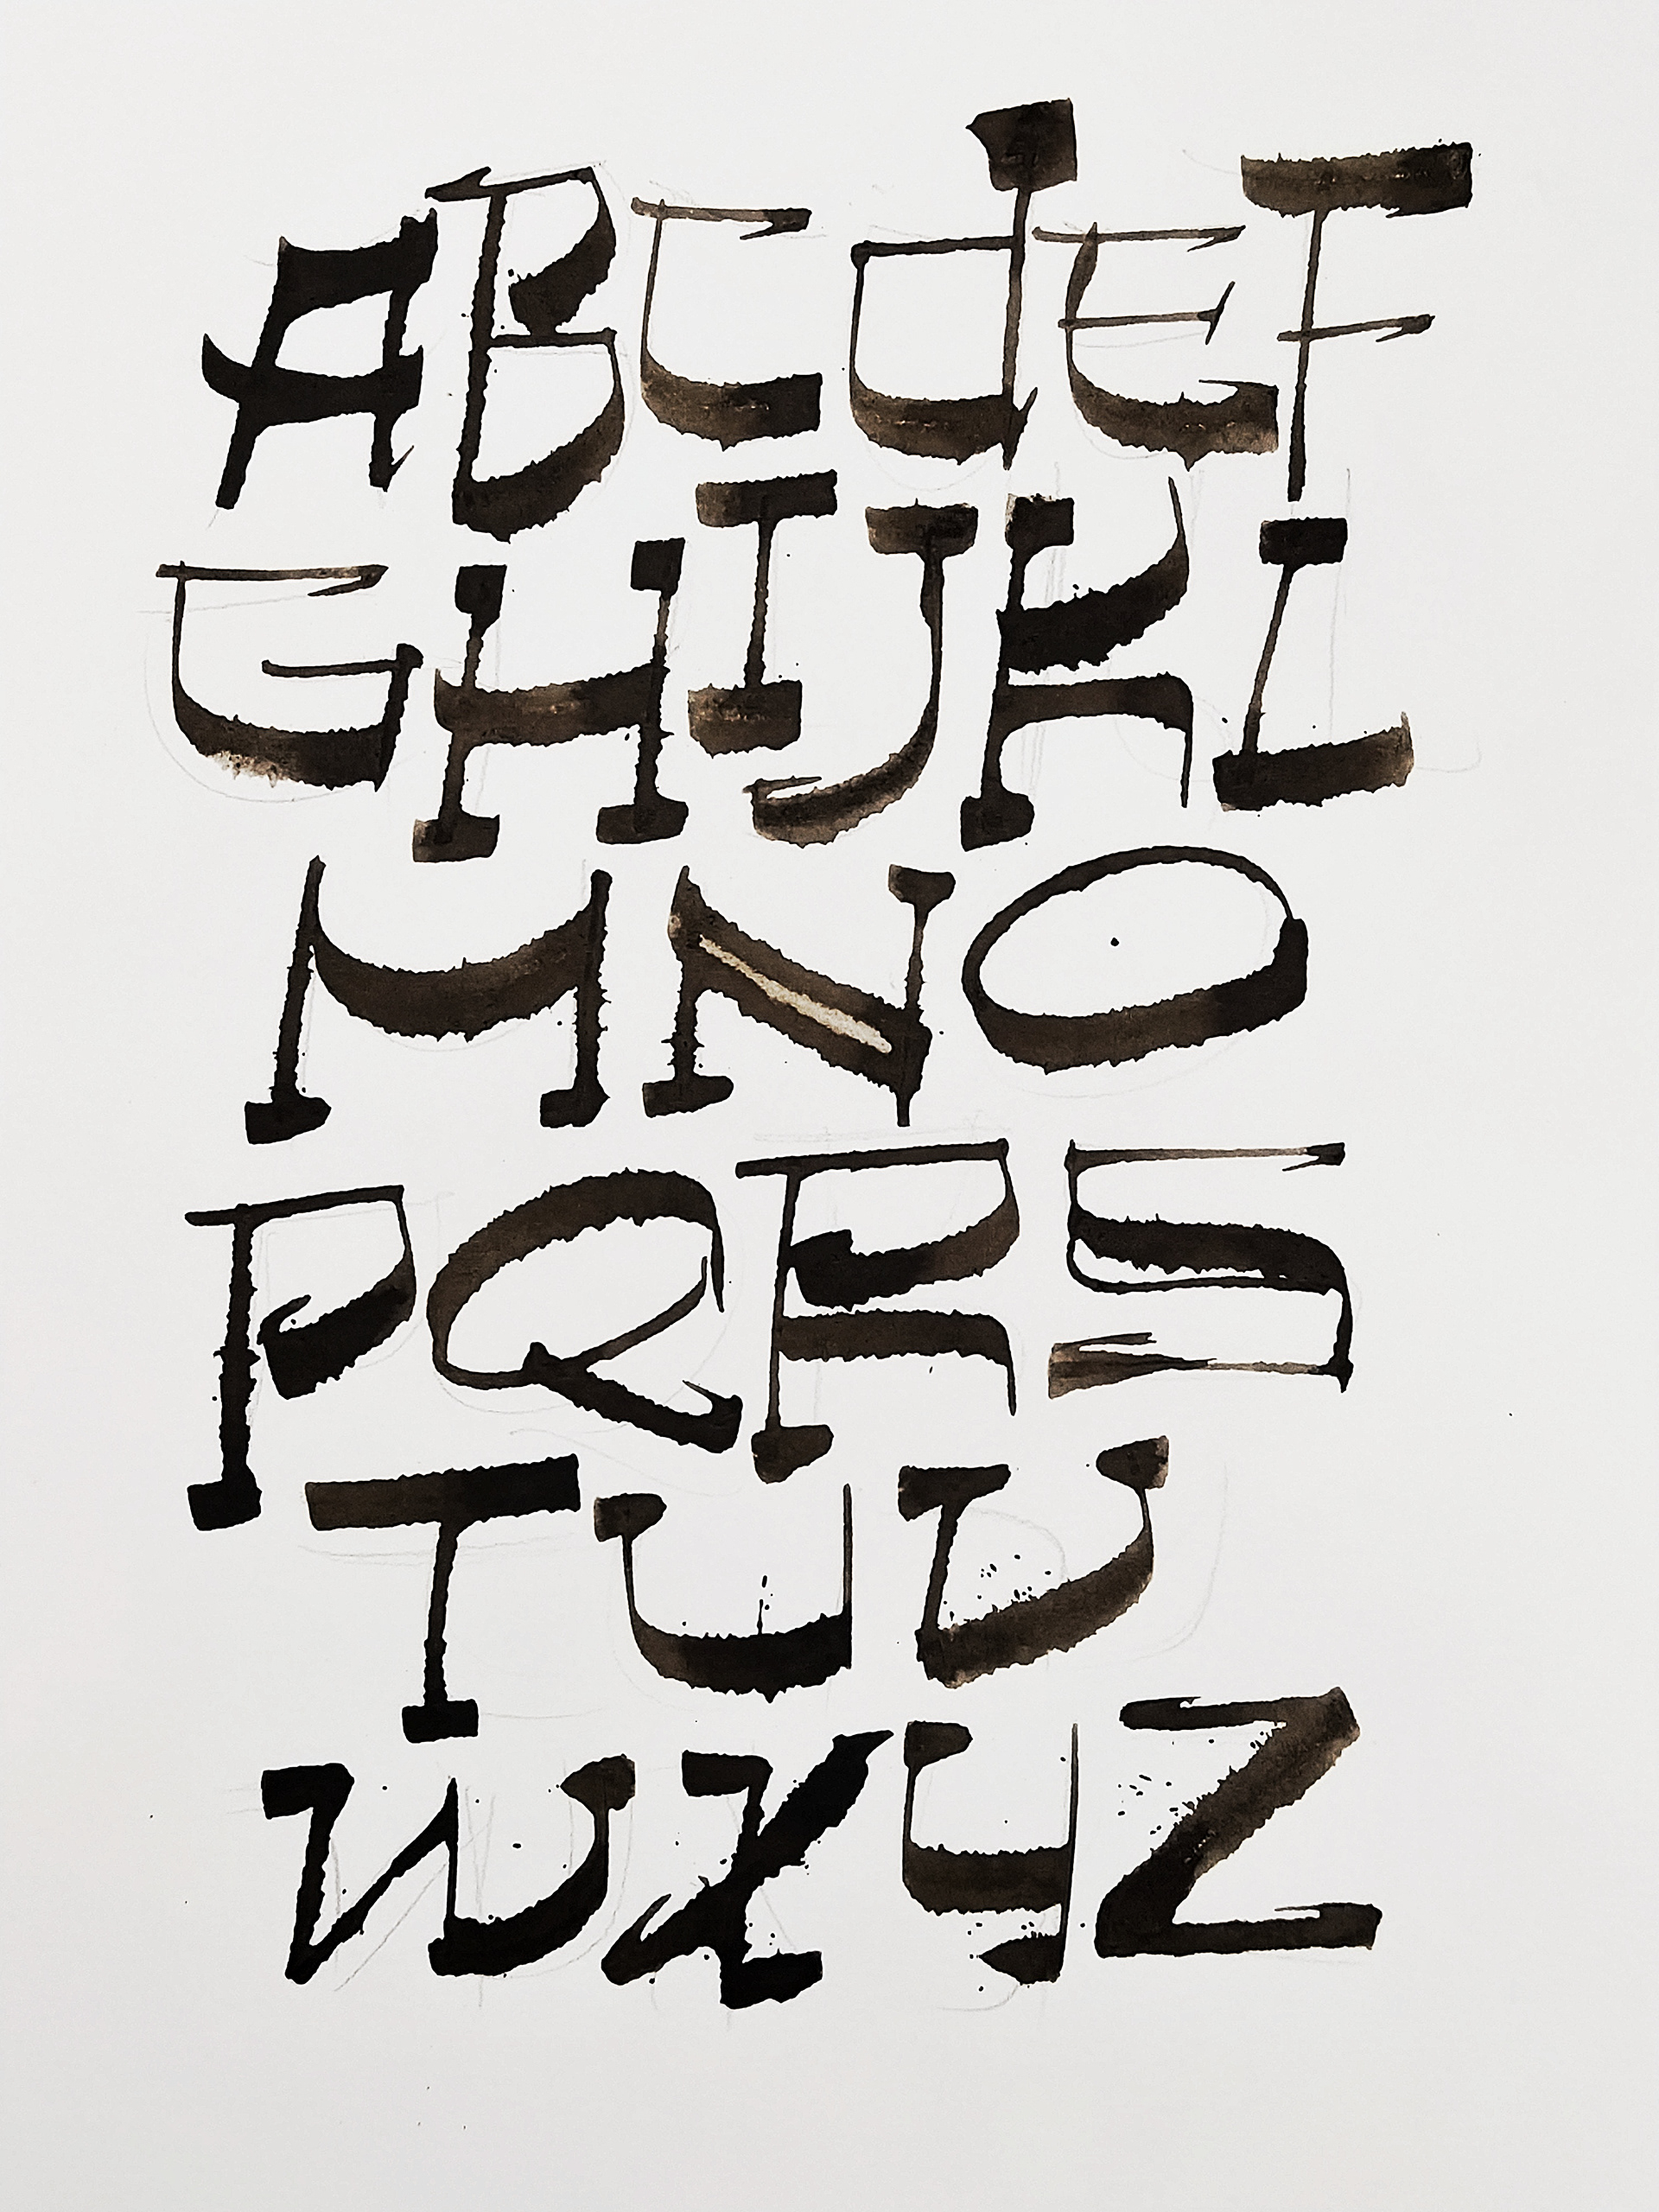 ABCdEF
GHIJKL
MNO
PQRS
TUV
WXYZ